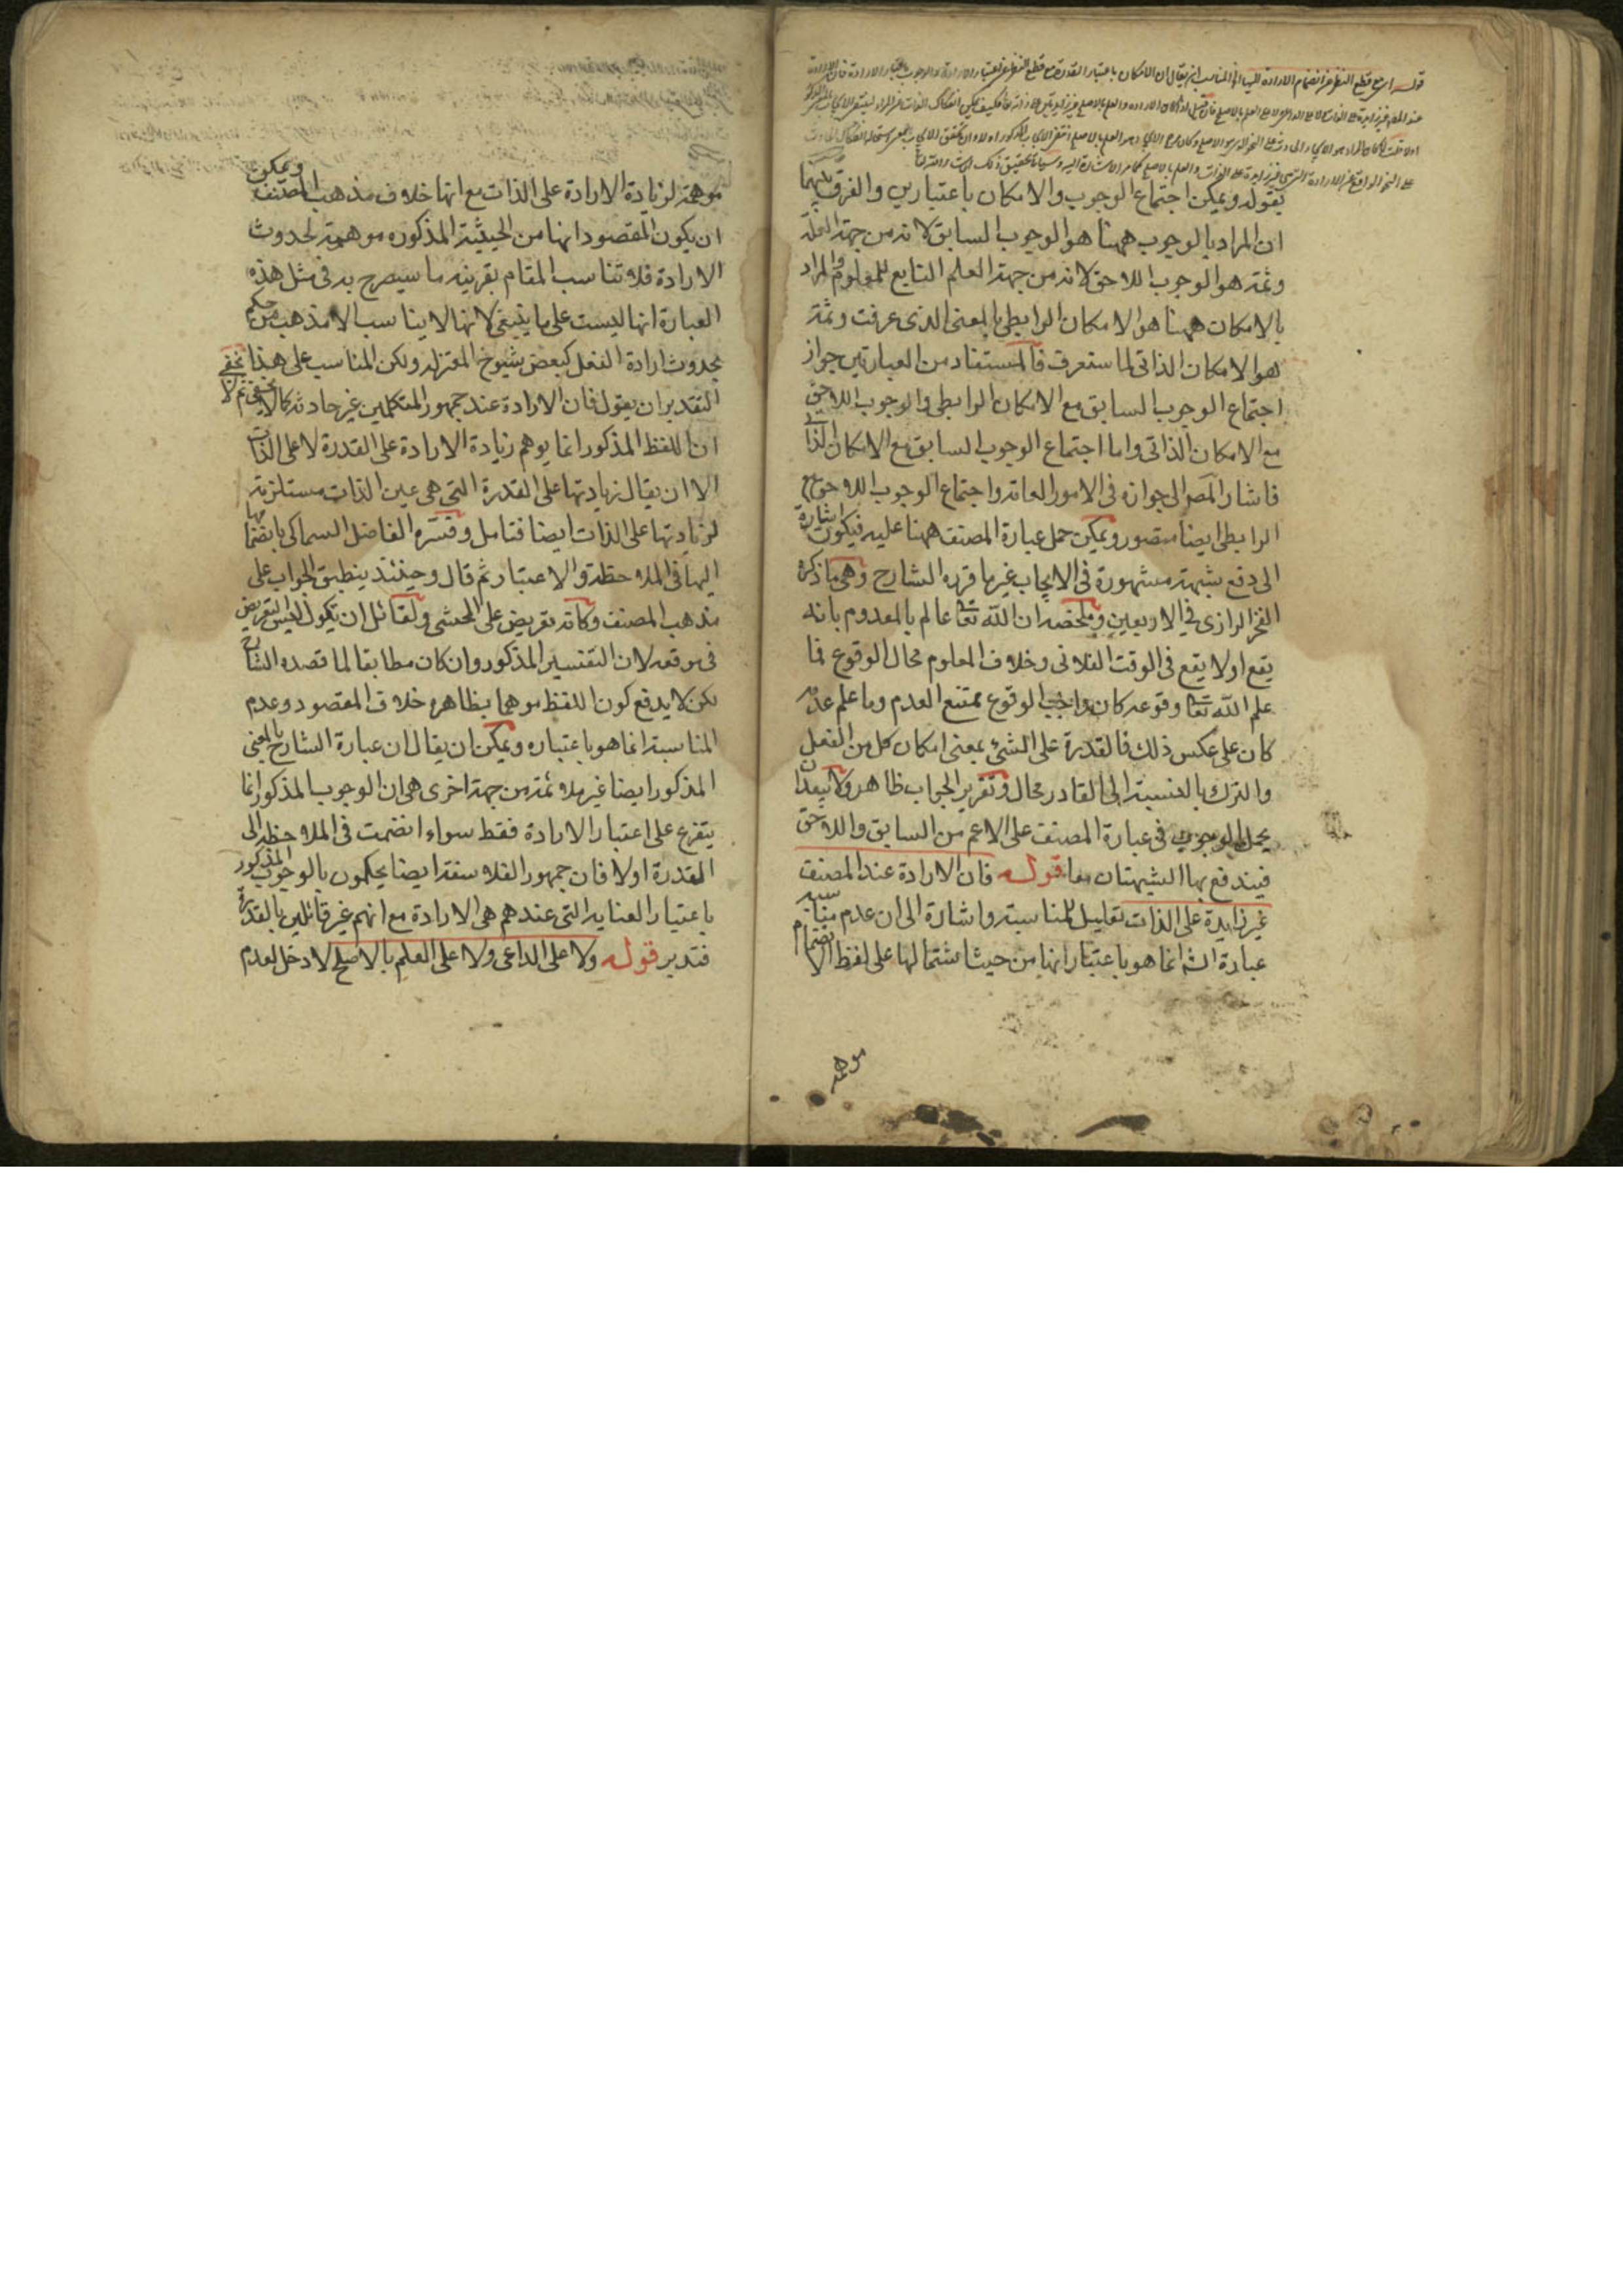 قوله اى مع قطع النظر عن انضمام الارادة اليها الخ المناسب ان يقال ان الامكان باعتبار القدرة مع قطع النظر عن اعتبار الارادة والوجوب باعتبار الارادة فان الارادة
بقوله ويمكن اجتماع الوجوب والامكان باعتبارين والفرق بينهما
ان المراد بالوجوب ههنا هو الوجوب السابق لانه من جهة العلة
وثمة هو الوجوب اللاحق لانه من جهة العلم التابع للمعلوم والمراد
بالامكان ههنا هو الامكان الرابطى بالمعنى الذى عرفت وثمة
هو الامكان الذاتى لما ستعرف فالمستفاد من العبارتين جواز
اجتماع الوجوب السابق مع الامكان الرابطى والوجوب اللاحق
مع الامكان الذاتى واما اجتماع الوجوب السابق مع الامكان الذاتى
فاشار المصر الى جوازه فى الامور العامة واجتماع الوجوب اللاحق مع
الرابطى ايضا متصور ويمكن حمل عبارة المصنف ههنا عليه فيكون اشارة
الى دفع شبهة مشهورة فى الايجاب غير ما قرره الشارح وهى ما ذكره
الفخر الرازى فى الاربعين وملخصه ان الله تعا عالم بالمعدوم بانه
يقع اولا يقع فى الوقت الفلانى وخلاف المعلوم محال الوقوع فما
علم الله تعا وقوعه كان واجب الوقوع ممتنع العدم وما علم عدمه
كان على عكس ذلك فالقدرة على الشئ بمعنى امكان كل من الفعل
والترك بالنسبة الى القادر محال وتقرير الجواب ظاهر ولا يبعد ان
يحمل الوجوب فى عبارة المصنف على الاعم من السابق واللاحق
فيندفع بها الشبهتان معا قوله فان الارادة عند المصنف
غير زايدة على الذات تعليل للمناسبة واشارة الى ان عدم مناسبة
عبارة الشه انما هو باعتبار انها من حيث اشتمالها على لفظ الانضمام
موهمة
موهمة لزيادة الارادة على الذات مع انها خلاف مذهب المصنف ويمكن
ان يكون المقصود انها من الحيثية المذكوره موهمة لحدوث
الارادة فلا تناسب المقام بقرينة ما سيصرح به فى مثل هذه
العبارة انها ليست على ما ينبغى لانها لا يناسب الا مذهب من حكم
بحدوث ارادة الفعل كبعض شيوخ المعتزلة ولكن المناسب على هذا
التقدير ان يقول فان الارادة عند جمهور المتكلمين غير حادثة كما لا يخفى ثم لا يخفى
ان اللفظ المذكور انما يوهم زيادة الارادة على القدرة لا على الذات
الا ان يقال زيادتها على القدرة التى هى عين الذات مستلزمة
لزيادتها على الذات ايضا فتامل وفسره الفاضل السماكى بانضمامها
اليها فى الملاحظة والاعتبار ثم قال وحينئذ ينطبق الجواب على
مذهب المصنف وكانه تعريض على المحشى ولقائل ان يقول ليس التعريض
فى موقعه لان التفسير المذكور وان كان مطابقا لما قصده الشارح
لكن لا يدفع كون اللفظ موهما بظاهره خلاف المقصود وعدم
المناسبة انما هو باعتباره ويمكن ان يقال ان عبارة الشارح بالمعنى
المذكور ايضا غير ملائمة من جهة اخرى هى ان الوجوب المذكور انما
يتفرع على اعتبار الارادة فقط سواء انضمت فى الملاحظة الى
القدرة اولا فان جمهور الفلاسفة ايضا يحكمون بالوجوب المذكور
باعتبار العناية التى عندهم هى الارادة مع انهم غير قائلين بالقدرة
فتدبر قوله ولا على الداعى ولا على العلم بالاصلح لا دخل لعدم